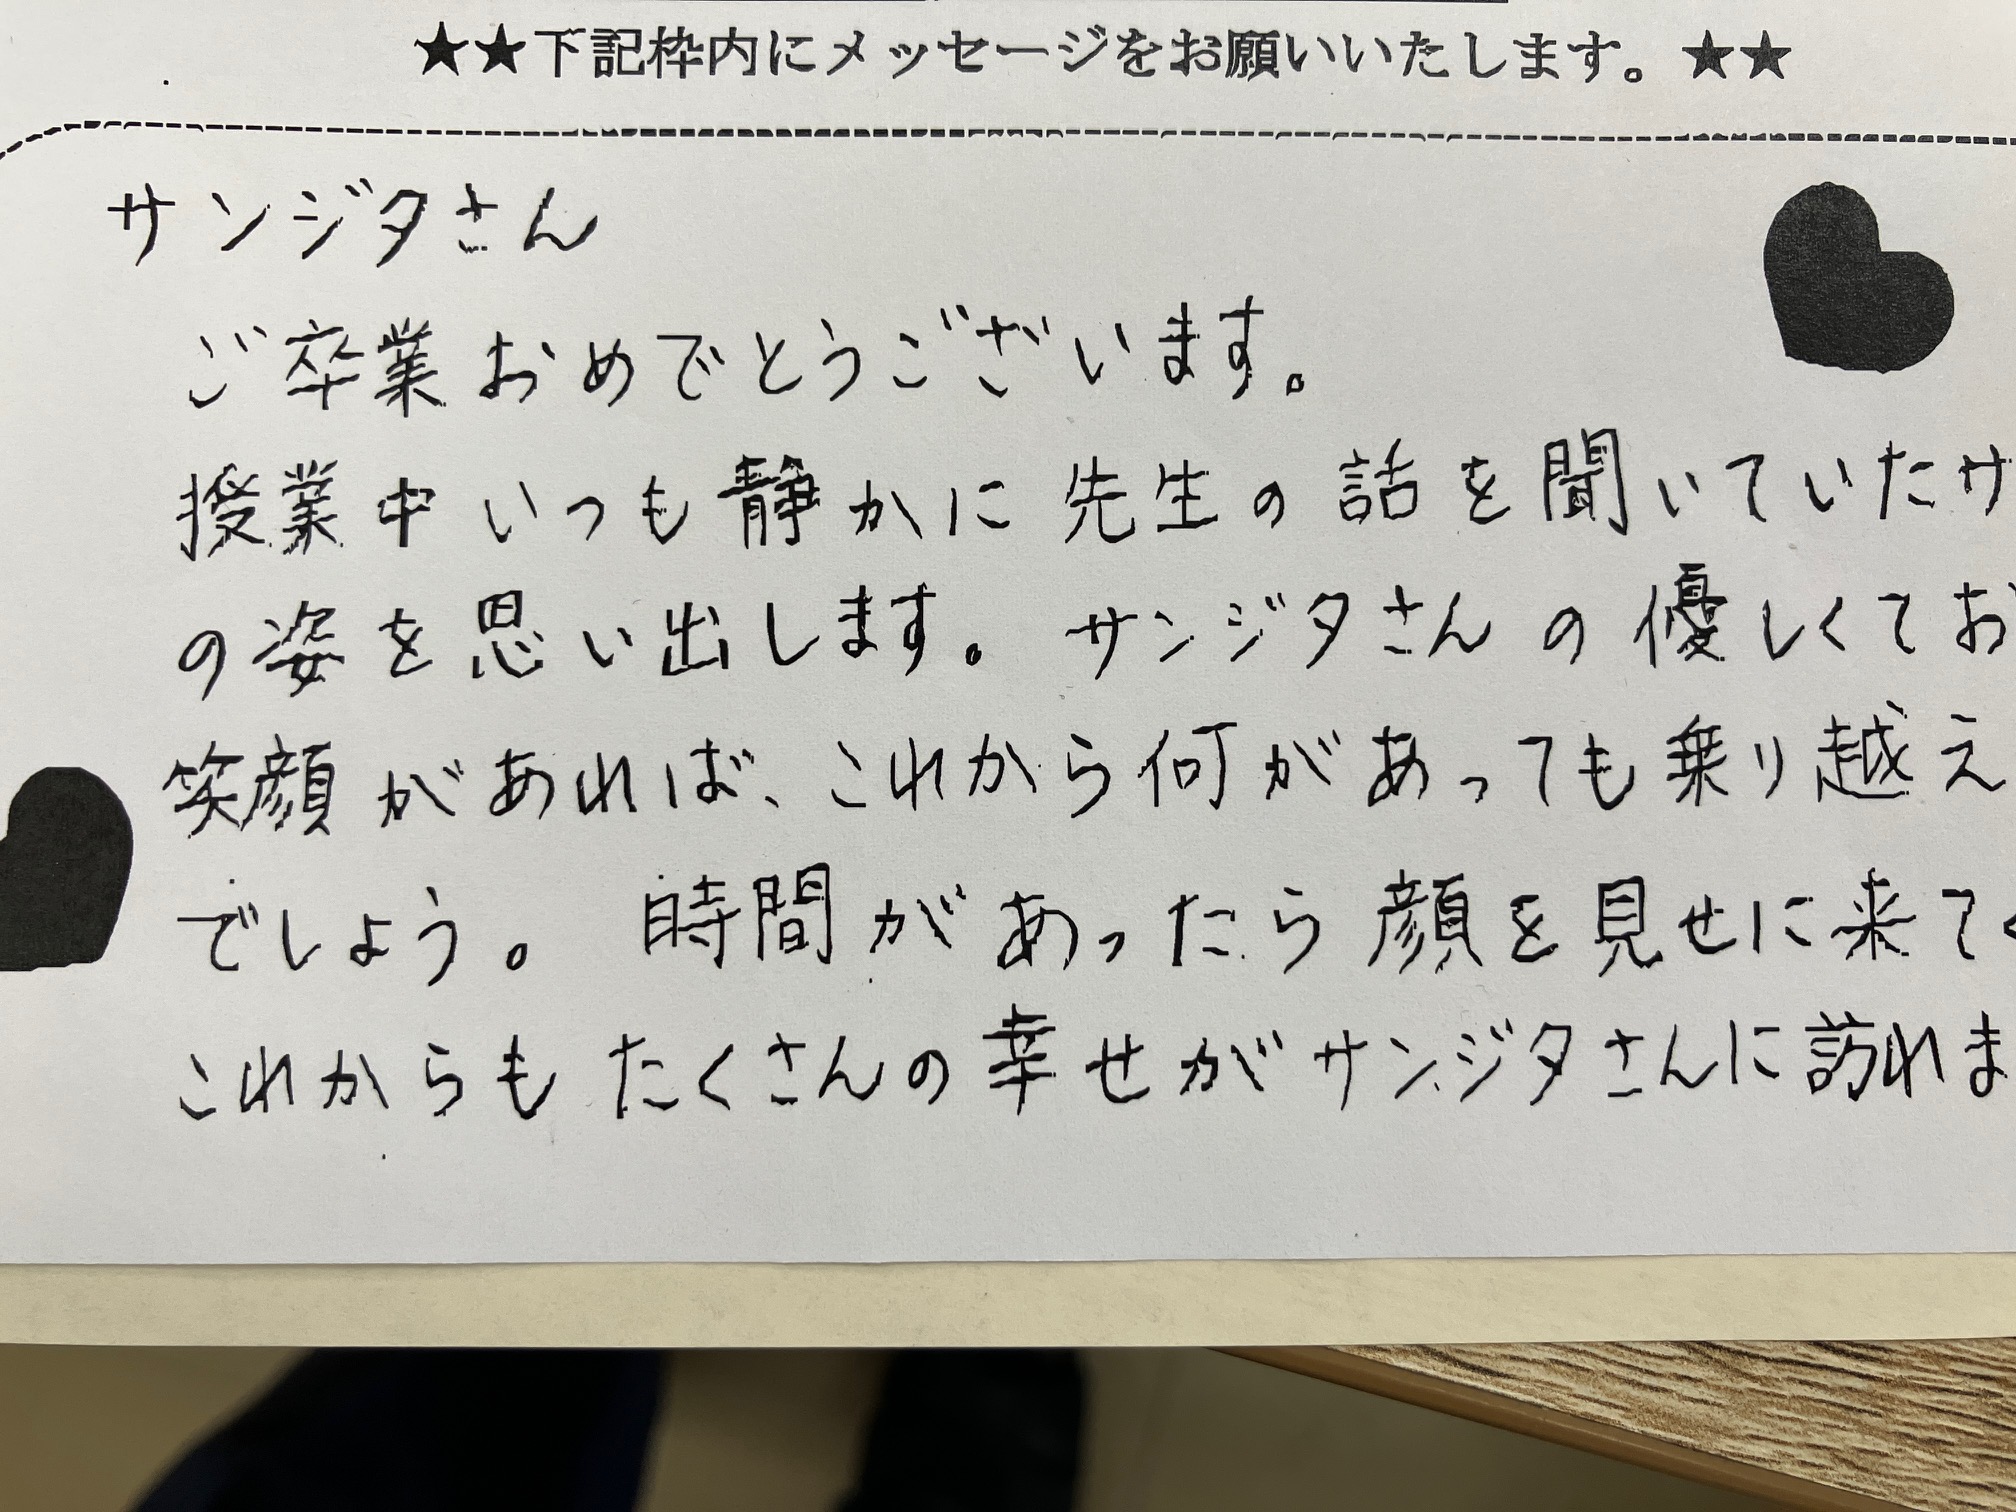 ★★下記枠内にメッセージをお願いいたします。★★
サンジタさん
ご卒業おめでとうございます。
授業中いつも静かに先生の話を聞いていたサ
の姿を思い出します。サンジタさんの優しくてお
笑顔があれば、これから何があっても乗り越え
でしょう。 時間があったら顔を見せに来てく
これからもたくさんの幸せがサンジタさんに訪れま